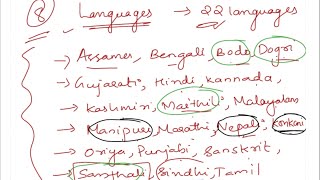 ⑧ Languages → 22 languages
→ Assames, Bengali, Bodo, Dogri
→ Gujarati, Hindi, Kannada,
→ Kashmiri, Maithili, Malayalam
→ Manipuri, Marathi, Nepali, Konkani
→ Oriya, Punjabi, Sanskrit,
→ Santhali, Sindhi, Tamil